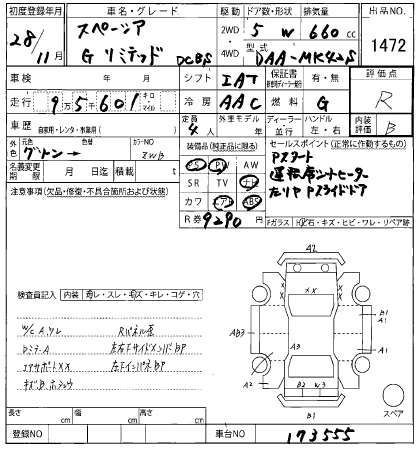 初度登録年月 車名・グレード 駆動 ドア数・形状 排気量 出品NO.
28/11月 スペーシア Gリミテッド DCBS 2WD 4WD 5 W 660 cc 1472
型式 DAA-MK42S
車検 年 月 シフト IAT 保証書 有・無 評価点
走行 9万5千601 キロ・マイル 冷房 AAC 燃料 G R
車歴 自家用・レンタ・事業用( ) 定員 4人 外車モデル 年 ディーラー・並行 ハンドル 左・右 内装評価 B
外色 元色 グリーン→ 色替 カラーNO ZWB
装備品(純正品に限る) セールスポイント(正常に作動するもの)
PS PW AW Pスタート
名義変更期限 月 日 積載 t
SR TV ナビ 運転席シートヒーター
注意事項(欠品・修復・不具合箇所および状態)
カワ エアB ABS 左リヤPスライドドア
R券 9290 円
Fガラス 飛石・キズ・ヒビ・ワレ・リペア跡
A2
検査員記入 内装 汚レ・スレ・キズ・キレ・コゲ・穴
XX
W/C A,サレ Rパネル歪
AB3 A3 B1 A1
Dミラー A 左右FサイドメンバBP
エアサポートXX 左FインパネBP
A2 B2 W3 A1
B1
スペア
長さ cm 幅 cm 高さ cm
登録NO 車台NO 173555